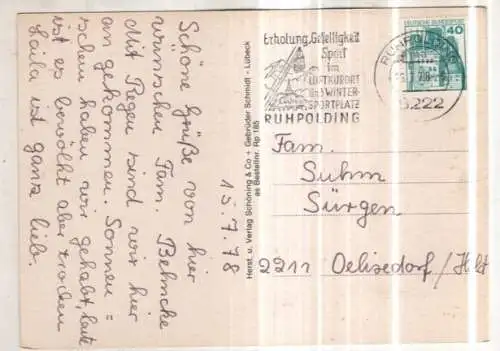 Schöne Grüße von hier
wünschen Fam. Behncke
Mit Regen sind wir hier
angekommen. Sonnen =
schein haben wir gehabt, heute
ist es bewölkt aber trocken
Laila ist ganz lieb.
15.7.78
Herst. u. Verlag Schöning & Co + Gebrüder Schmidt - Lübeck
as Bestellnr. Rp 185
Erholung, Geselligkeit
Sport
im
LUFTKURORT
UND WINTER-
SPORTPLATZ
RUHPOLDING
RUHPOLDING
8222
DEUTSCHE BUNDESPOST
40
Fam.
Suhm
Jürgen
2211 Oelixdorf / Holst